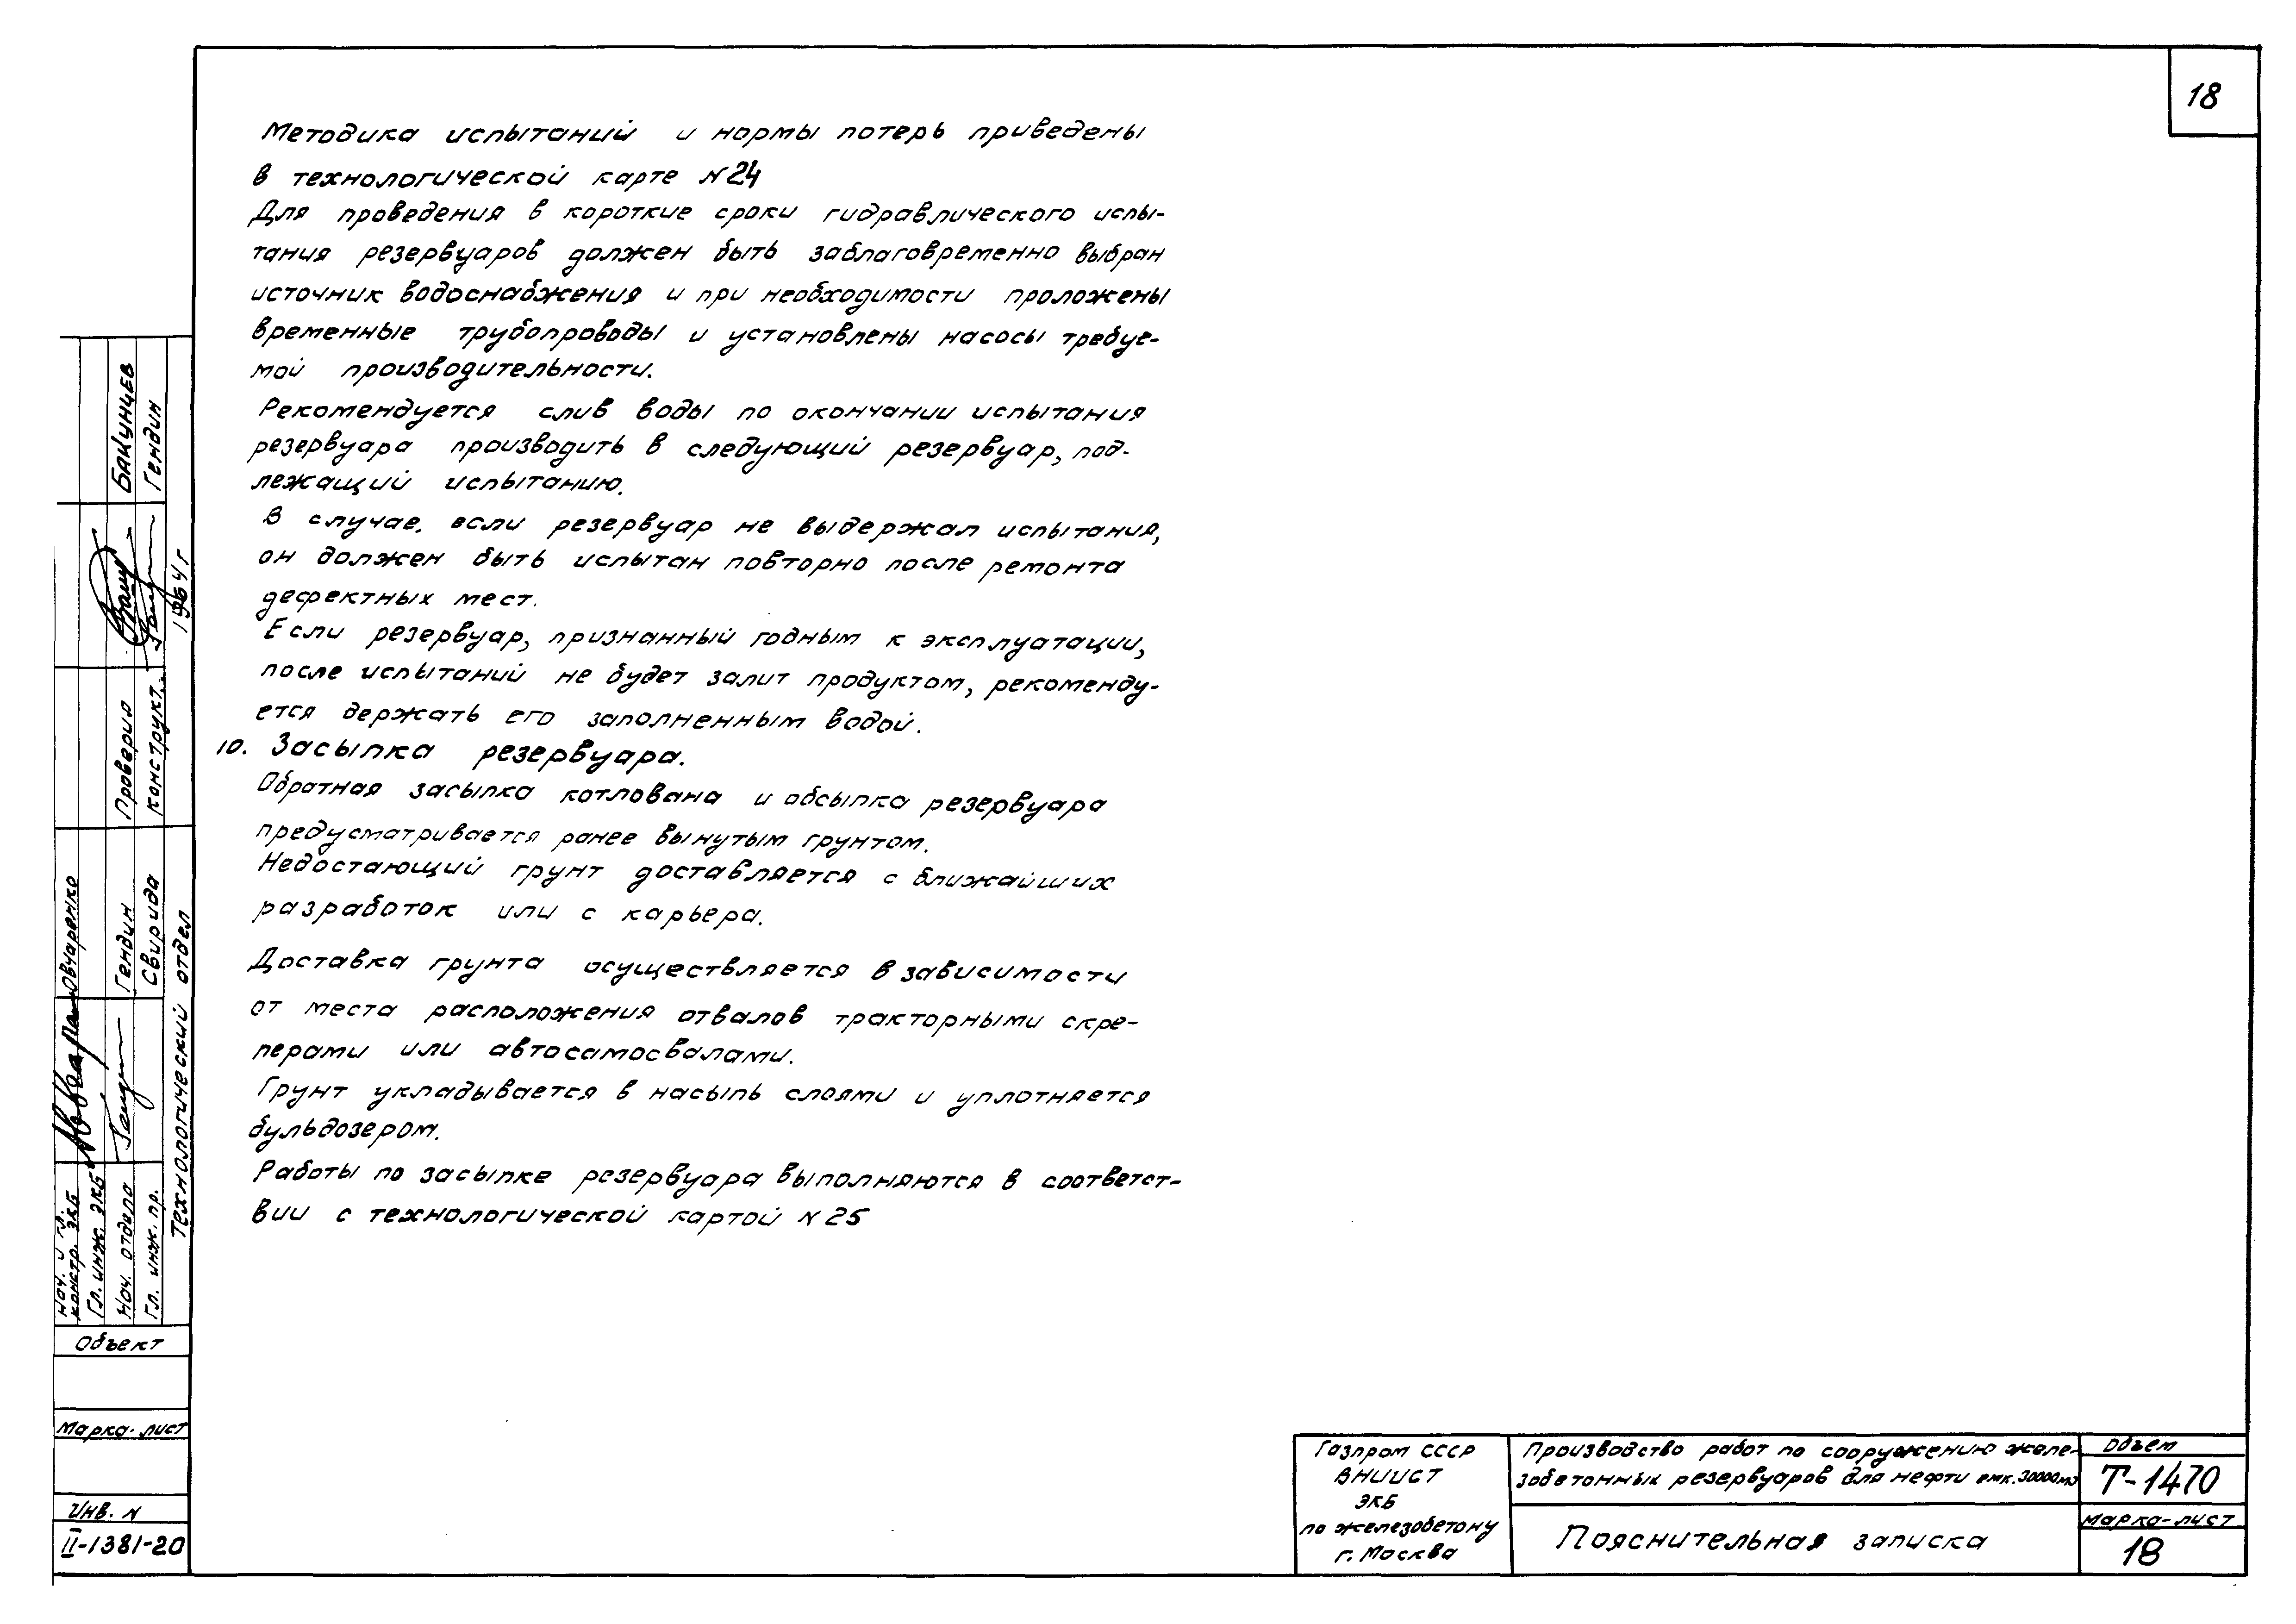 18
Методика испытаний и нормы потерь приведены
в технологической карте N 24
Для проведения в короткие сроки гидравлического испы-
тания резервуаров должен быть заблаговременно выбран
источник водоснабжения и при необходимости проложены
временные трубопроводы и установлены насосы требуе-
мой производительности.
Рекомендуется слив воды по окончании испытания
резервуара производить в следующий резервуар, под-
лежащий испытанию.
В случае, если резервуар не выдержал испытания,
он должен быть испытан повторно после ремонта
дефектных мест.
Если резервуар, признанный годным к эксплуатации,
после испытаний не будет залит продуктом, рекоменду-
ется держать его заполненным водой.
10. Засыпка резервуара.
Обратная засыпка котлована и обсыпка резервуара
предусматривается ранее вынутым грунтом.
Недостающий грунт доставляется с ближайших
разработок или с карьера.
Доставка грунта осуществляется в зависимости
от места расположения отвалов тракторными скре-
перами или автосамосвалами.
Грунт укладывается в насыпь слоями и уплотняется
бульдозером.
Работы по засыпке резервуара выполняются в соответст-
вии с технологической картой N 25
Нач. и гл.
констр. ЭКБ
Овчаренко
Гл. инж. ЭКБ
Нач. отдела
Гендин
Проверил
Бакунцев
Гл. инж. пр.
Свирида
Конструкт.
Гендин
Технологический отдел
1964 г
Объект
Марка-лист
Инв. N
II-1381-20
Газпром СССР
ВНИИСТ
ЭКБ
по железобетону
г. Москва
Производство работ по сооружению желе-
зобетонных резервуаров для нефти емк. 30000 м3
Пояснительная записка
Объем
Т-1470
Марка-лист
18